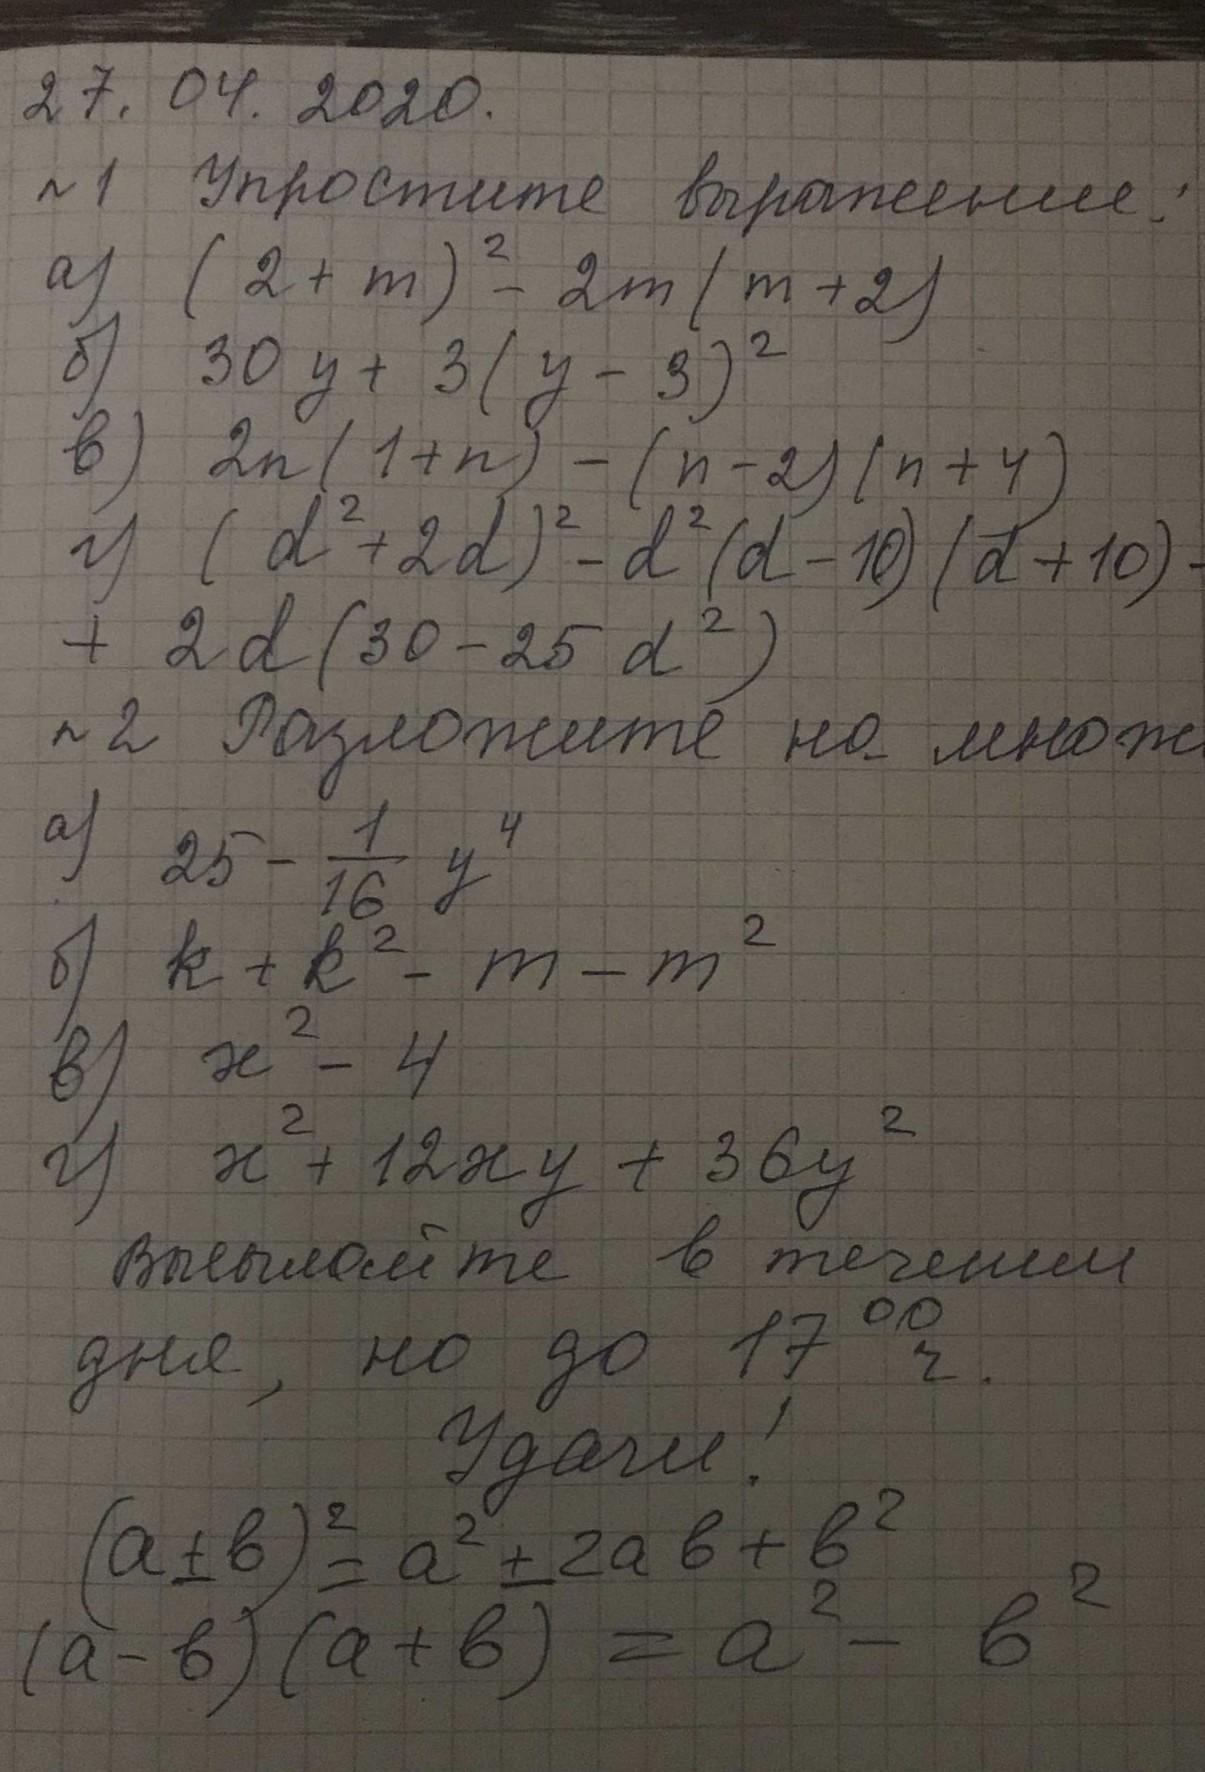 27. 04. 2020.
~1 Упростите выражение:
а) (2 + m)² - 2m(m + 2)
б) 30 y + 3(y - 3)²
в) 2n(1+n) - (n-2)(n+4)
г) (d²+2d)² - d²(d-10)(d+10) -
+ 2d(30-25 d²)
~2 Разложите на множ
а) 25 - 1/16 y⁴
б) k + k² - m - m²
в) x² - 4
г) x² + 12xy + 36y²
Высылайте в течении
дня, но до 17⁰⁰ ч.
Удачи!
(a ± b)² = a² ± 2ab + b²
(a - b)(a + b) = a² - b²